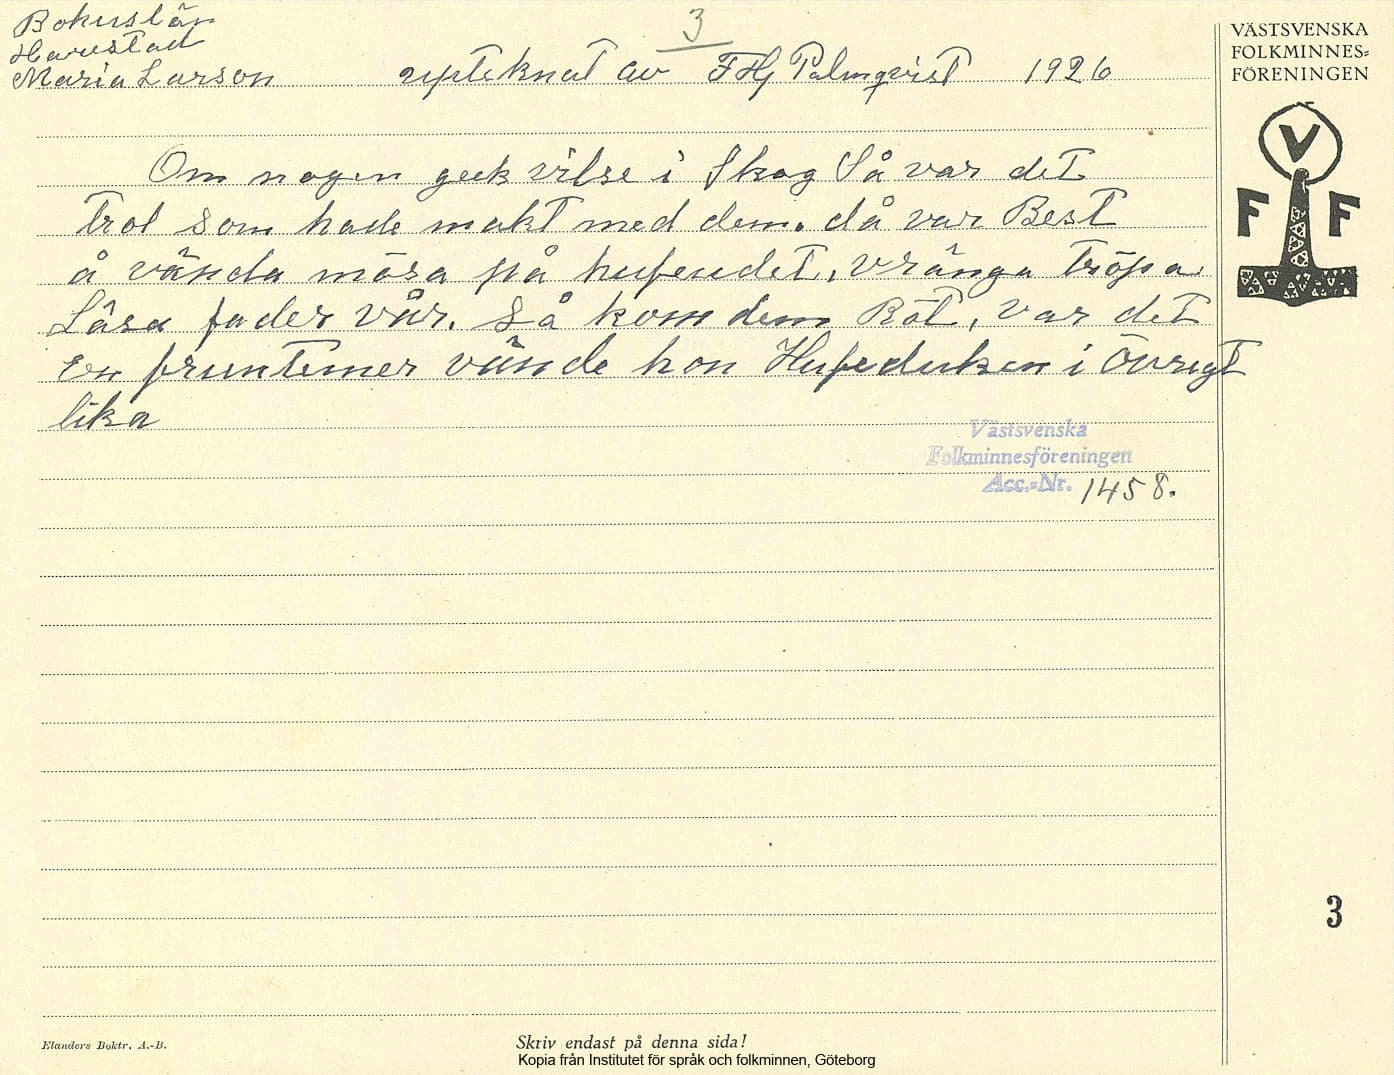 Bohuslän
Harestad
Maria Larson upteknat av F Hj Palmqvist 1926
3
VÄSTSVENSKA
FOLKMINNES=
FÖRENINGEN
V
F F
Om nogen geck vilse i Skog Så var det
trol som hade makt med dem. då var Best
å vända mösa på hufvudet, vränga tröja
Läsa fader vår. Så kom dem Rät, var det
en fruntimer vände hon Hufvduken i Övrigt
lika
Västsvenska
Folkminnesföreningen
Acc.=Nr. 1458.
3
Elanders Boktr. A.-B.
Skriv endast på denna sida!
Kopia från Institutet för språk och folkminnen, Göteborg